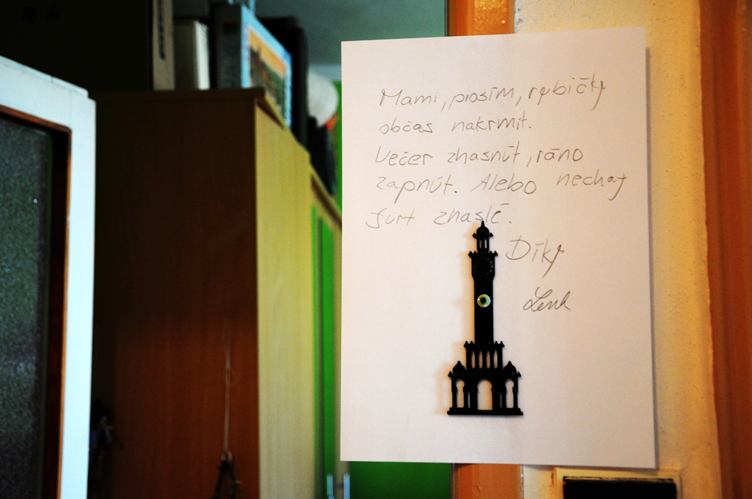 Mami, prosím, rybičky
občas nakrmit.
Večer zhasnút, ráno
zapnút. Alebo nechaj
furt zhaslé.
Díky
Lenk